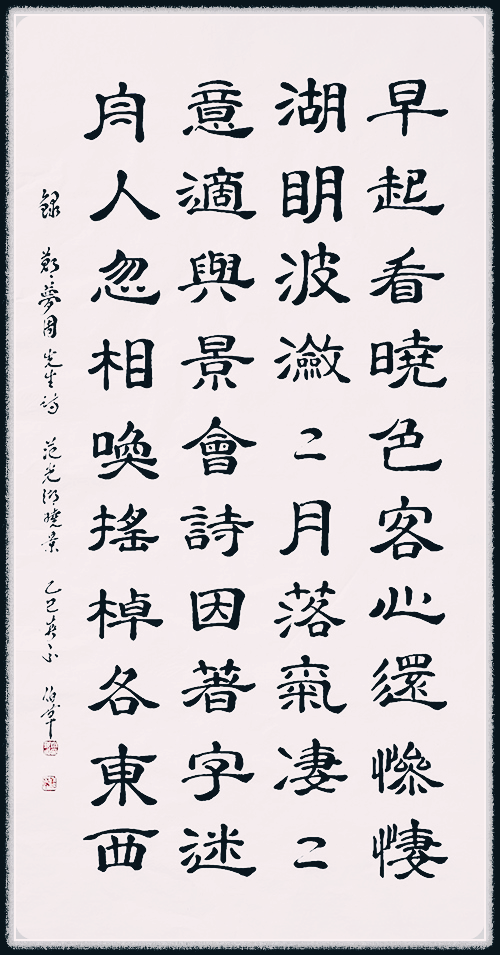 早起看曉色客心還慘悽
湖明波瀲二月落氣凄二
意適與景會詩因著字迷
舟人忽相喚搖棹各東西
錄 鄭夢周先生詩 范光湖曉景 乙巳